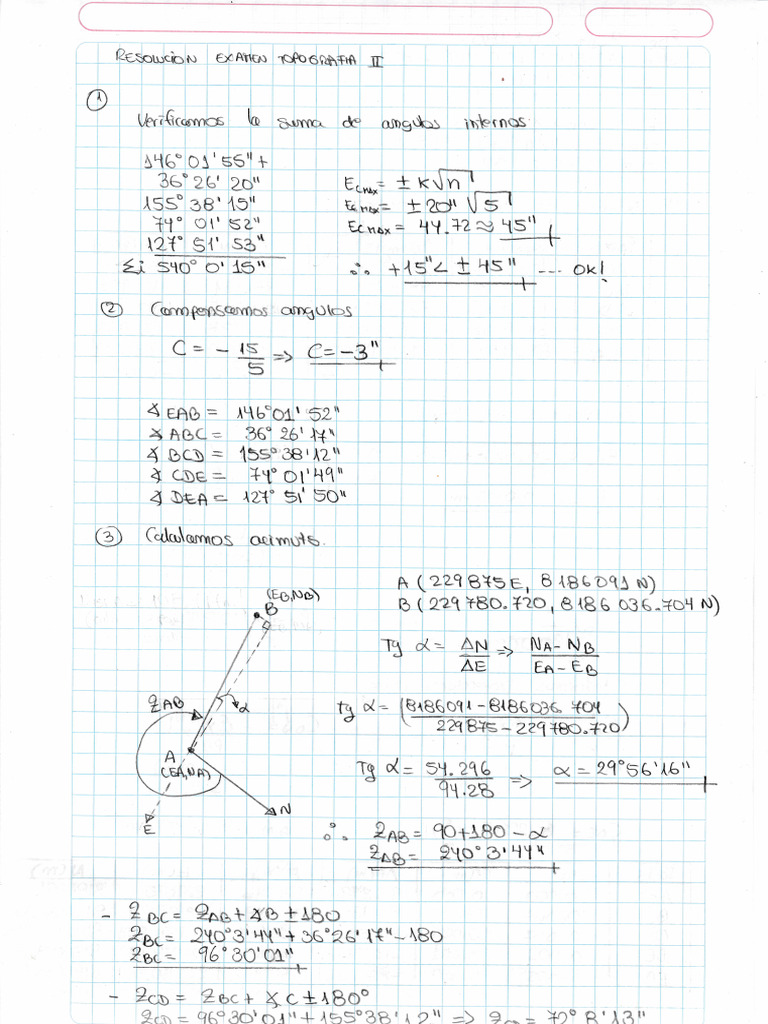 RESOLUCION EXAMEN TOPOGRAFIA II
1
Verificamos la suma de angulos internos
146° 01' 55" +
36° 26' 20"
155° 38' 15"
74° 01' 52"
127° 51' 53"
Σi 540° 0' 15"
Ecmax = ± K√n
Ecmax = ± 20" √5
Ecmax = 44.72 ≈ 45"
∴ +15" < ± 45" --- OK!
2 Compensamos angulos
C = - 15/5 => C = -3"
∡ EAB = 146° 01' 52"
∡ ABC = 36° 26' 17"
∡ BCD = 155° 38' 12"
∡ CDE = 74° 01' 49"
∡ DEA = 127° 51' 50"
3 Calculamos acimuts.
A (229875E, 8186091N)
B (229780.720, 8186036.704N)
(EB,NB)
B
Tg α = ΔN/ΔE => NA-NB/EA-EB
ZAB
α
Tg α = (8186091-8186036.704/229875-229780.720)
A
(EA,NA)
Tg α = 54.296/94.28 => α = 29°56'16"
N
E
∴ ZAB = 90+180-α
ZAB = 240° 3' 44"
- ZBC = ZAB + ∡B ± 180
ZBC = 240° 3' 44" + 36° 26' 17" - 180
ZBC = 96° 30' 01"
- ZCD = ZBC + ∡C ± 180°
ZCD = 96° 30' 01" + 155° 38' 12" => ZCD = 72° 8' 13"